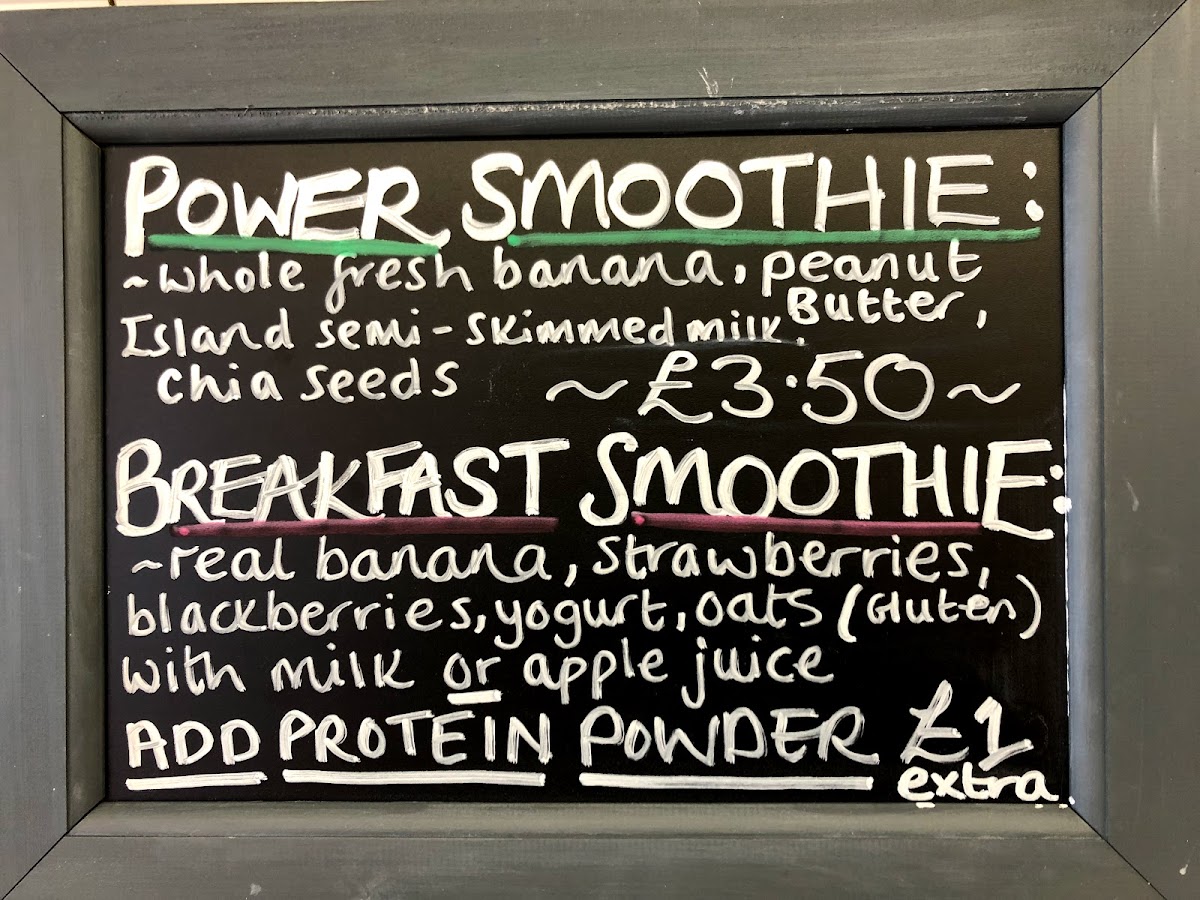 POWER SMOOTHIE:
~whole fresh banana, peanut
Butter,
Island semi-skimmed milk,
chia seeds ~£3.50~
BREAKFAST SMOOTHIE:
~real banana, strawberries,
blackberries, yogurt, oats (Gluten)
with milk or apple juice
ADD PROTEIN POWDER £1
extra